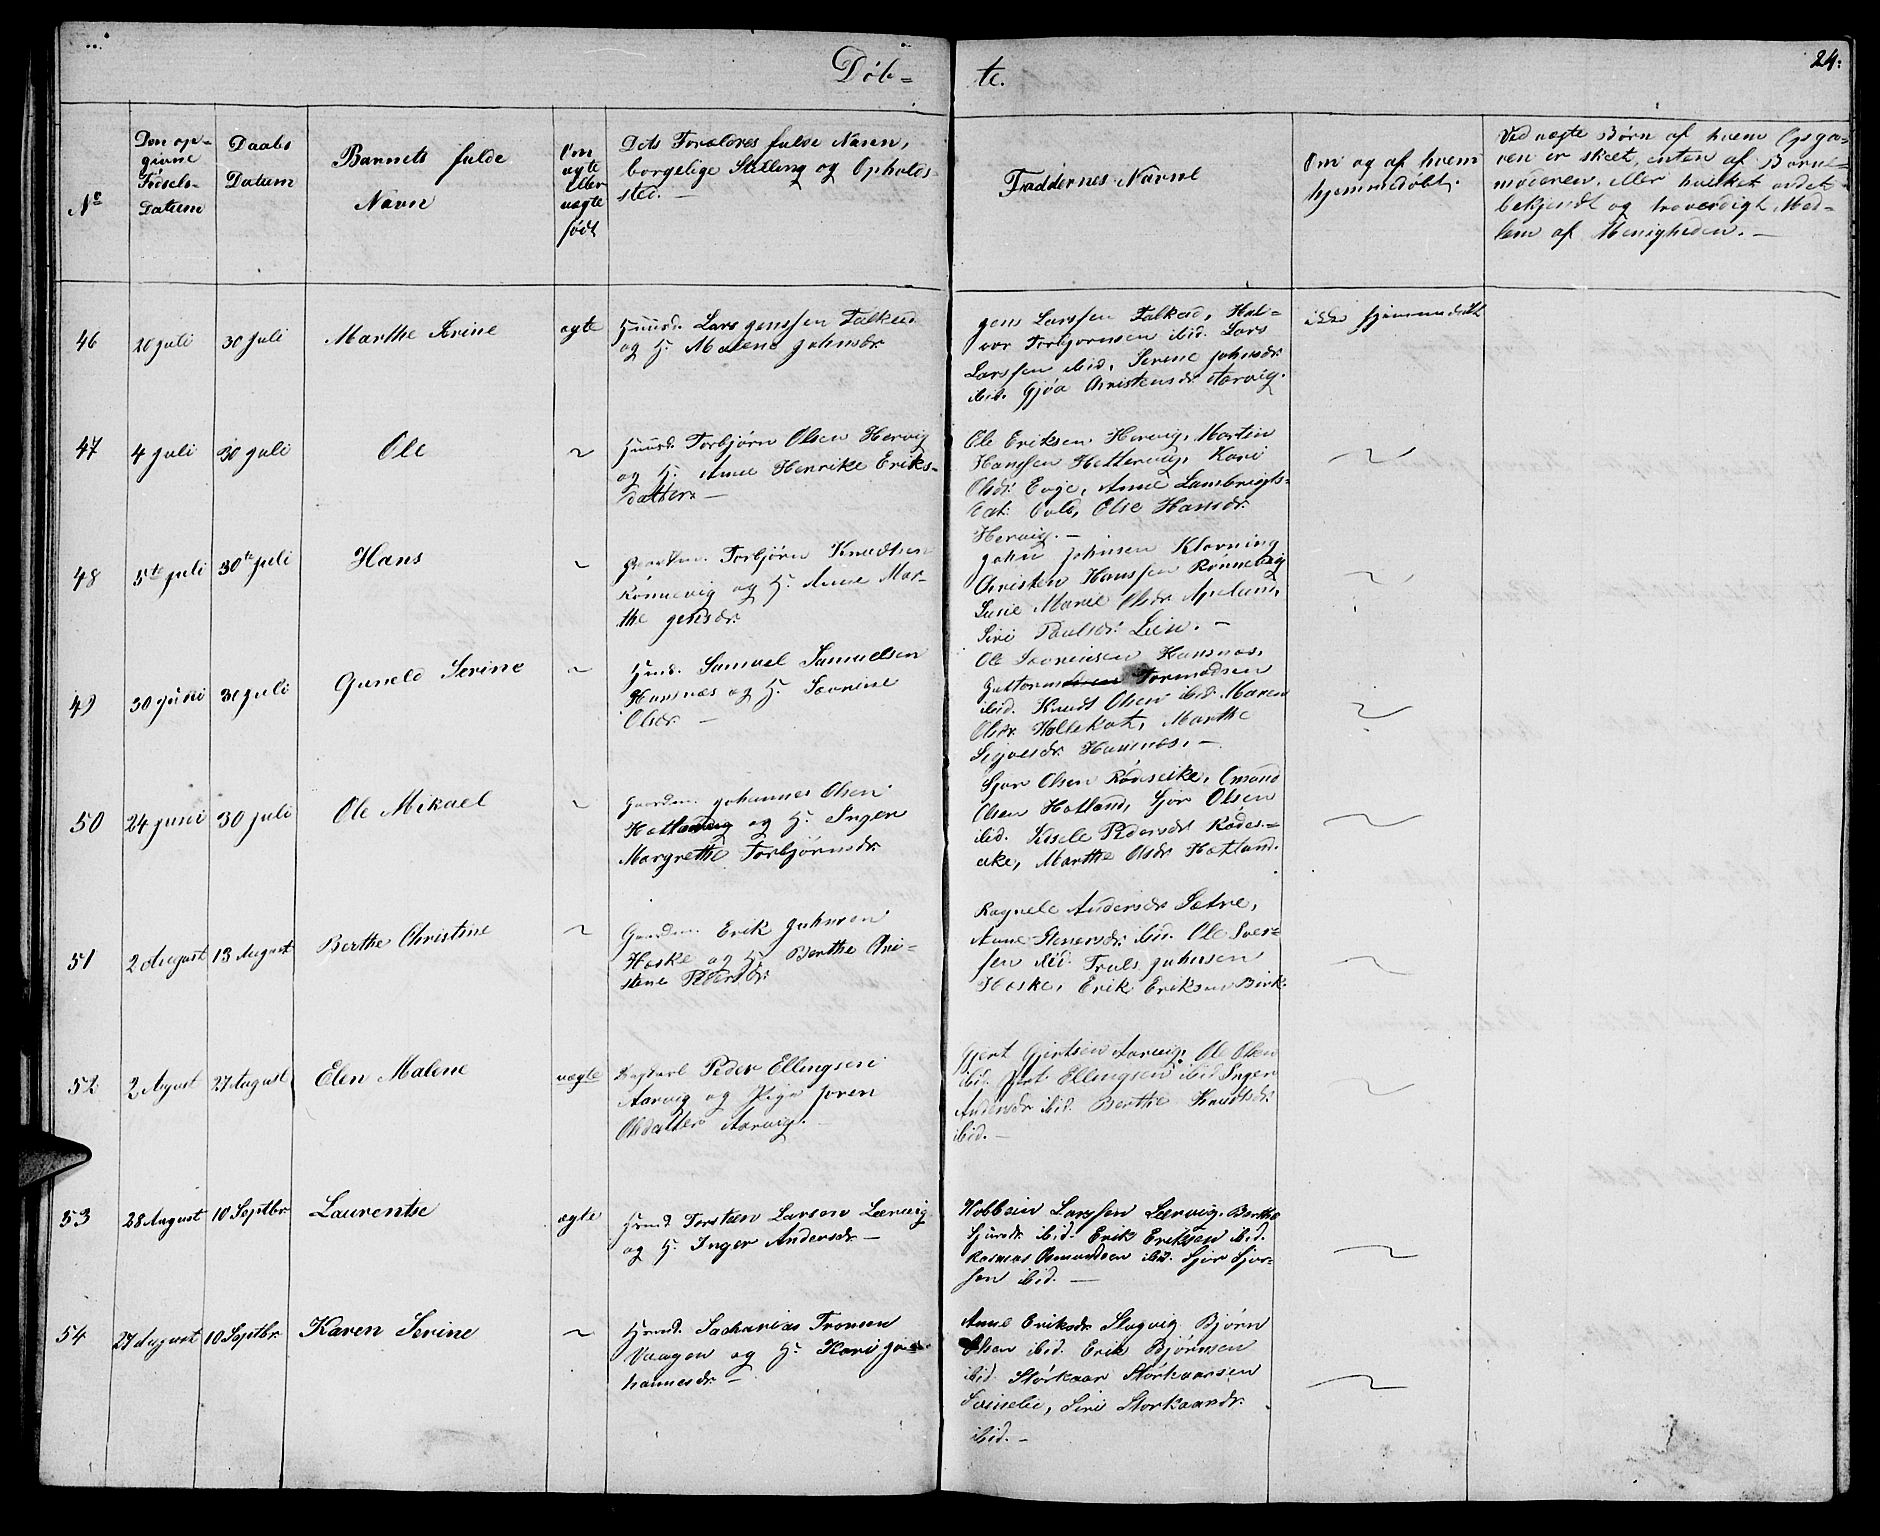 Døb=
te.
24.
No
Den op-
givne
Fødsels-
Datum
Daabs
Datum
Barnets fulde
Navn
Om
ægte
eller
uægte
født
Dets Forældres fulde Navn,
borgelige Stilling og Opholds-
sted. –
Faddernes Navne
Om og af hvem
hjemmedøbt.
Ved uægte Børn af hvem Opga-
ven er skeet, enten af Barne-
moderen, eller hvilket andet
bekjendt og troværdigt Med-
lem af Menigheden. –
46
20 juli
30 juli
Marthe Serine
ægte
Huusd. Lars Jenssen Falkeid
og H. Malene Johnsdr.
Jens Larssen Falkeid, Hal-
vor Torbjørnsen ibid. Lars
Larssen ibid, Serine Johnsdr.
ibid. Gjøa Christensdr. Aarvig.
ikke hjemmedøbt
47
4 juli
30 juli
Ole
~
Huusd. Torbjørn Olsen Hervig
og H. Anne Henrike Eriks-
datter. –
Ole Eriksen Hervig, Martin
Hanssen Hettervig, Kari
Olsdr. Euge, Anne Lambrigts-
dat. Vold, Else Hansdr.
Hervig. –
~
48
5te juli
30te juli
Hans
~
Gaardm. Torbjørn Knudtsen
Rønnevig og H. Anne Mar-
the Jensdr.
John Johnsen Klovning
Christen Hanssen Rønnevig
Susie Marie Olsdr. Apeland,
Siri Paulsdr. Lien. –
~
49
30 juni
30 juli
Guneld Serine
~
Huusd. Samuel Samuelsen
Hansnæs og H. Sørine
Olsdr. –
Ole Sørensen Hansnæs,
Guttorm Tormodsen
ibid. Knudt Olsen ibid. Maren
Olsdr. Hollekat, Marthe
Sigvesdr. Hansnæs. –
~
50
24 juni
30 juli
Ole Mikael
~
Gaardm. Johannes Olsen
Hatland og H. Inger
Margrethe Torbjørnsdr.
Sjur Olsen Rødseike, Omund
Olsen Hatland, Sjur Olsen
ibid. Pedersdr. Rødes-
eike, Marthe Olsdr. Hatland.
~
51
2 August
13 August
Berthe Christine
~
Gaardm. Erik Johnsen
Haske og H. Berthe Chri-
stine Pedersdr.
Ragnele Andersdr. Sætre,
Anne Stenersdr. ibid. Ole Iver-
sen ibid. Truls Johnsen
Haske, Erik Eriksen Birk.
~
52
2 August
27 August
Elen Malene
uægte
Ungkarl Peder Ellingsen
Aarvig og Pige Joren
Olsdatter Aarvig. –
Gjert Gjertsen Aarvig, Ole Olsen
ibid. Ellingsen ibid Inger
Andersdr. ibid. Berthe Knudtsdr.
ibid. –
~
53
28 August
10 Septbr.
Laurentse
ægte
Huusd. Torsten Larsen Lærvig
og H. Inger Andersdr. –
Larssen Lærvig, Berthe
Sjursdr. ibid. Erik Eriksen ibid.
Rasmus Asmundsen ibid. Sjur Sjur-
sen ibid. –
~
54
27 August
10 Septbr.
Karen Serine
~
Huusd. Sacharias Tronsen
Vaagen og H. Kari Jo-
hannesdr. –
Anne Eriksdr. Slogvig Bjørn
Olsen ibid. Erik Bjørnsen
ibid. Størkaar Størkaarsen
Svinalie, Siri Storkaarsdr.
ibid. –
~